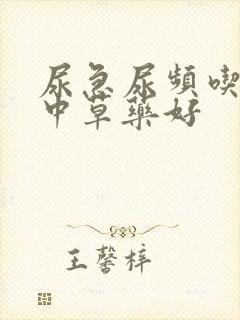 尿急尿頻喫
中草藥好
王馨梓